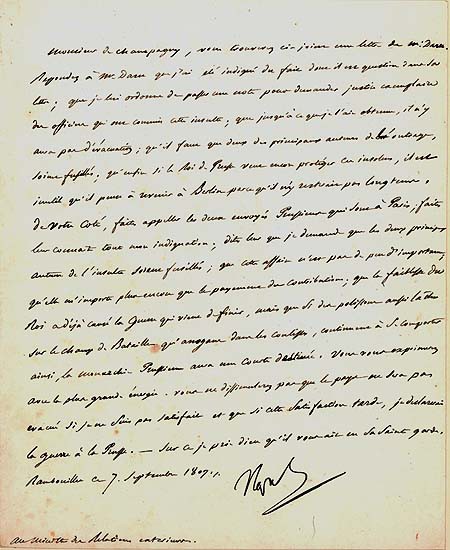 Monsieur de Champagny, vous trouverez ci-joint une lettre de Mr. Daru.
Repondez à Mr. Daru que j'ai été indigné du fait dont il est question dans sa
lettre; que je lui ordonne de passer une note pour demander justice exemplaire
des officiers qui ont commis cette insulte; que jusqu'à ce que je l'aie obtenu, il n'y
aura pas d'évacuation; qu'il faut que deux des principaux auteurs de cet outrage,
soient fusillés; qu'enfin si le Roi de Prusse veut encor protéger ces insolens, il est
inutile qu'il pense à revenir à Berlin parce qu'il n'y resterait pas longtems.
de votre Coté, faites appeller les deux envoyés Prussiens qui sont à Paris, faites
leur connaitre toute mon indignation; dites leur que je demande que les deux principaux
auteurs de l'insulte soient fusillés; que cette affaire n'est pas de peu d'importance,
qu'elle m'importe plus encore que le payement des Contributions; que la faiblesse du
Roi a déjà causé la Guerre qui vient de finir, mais que Si des polissons aussi laches
sur le champ de Bataille qu'arrogans dans les coulisses, continuent à se comporter
ainsi, la monarchie Prussienne aura une Courte destinée. Vous vous exprimerez
avec la plus grande énergie. vous ne dissimulerez pas que le pays ne sera pas
evacué si je ne Suis pas satisfait et que si cette Satisfaction tarde, je déclarerai
la guerre à la Prusse. — Sur ce je prie dieu qu'il vous ait en Sa Sainte garde.
Rambouillet ce 7. Septembre 1807.
Nap
au Ministre des Relations extérieures.